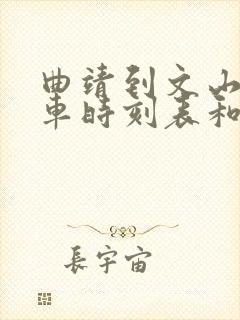 曲靖到文山
車時刻表和
長宇宙